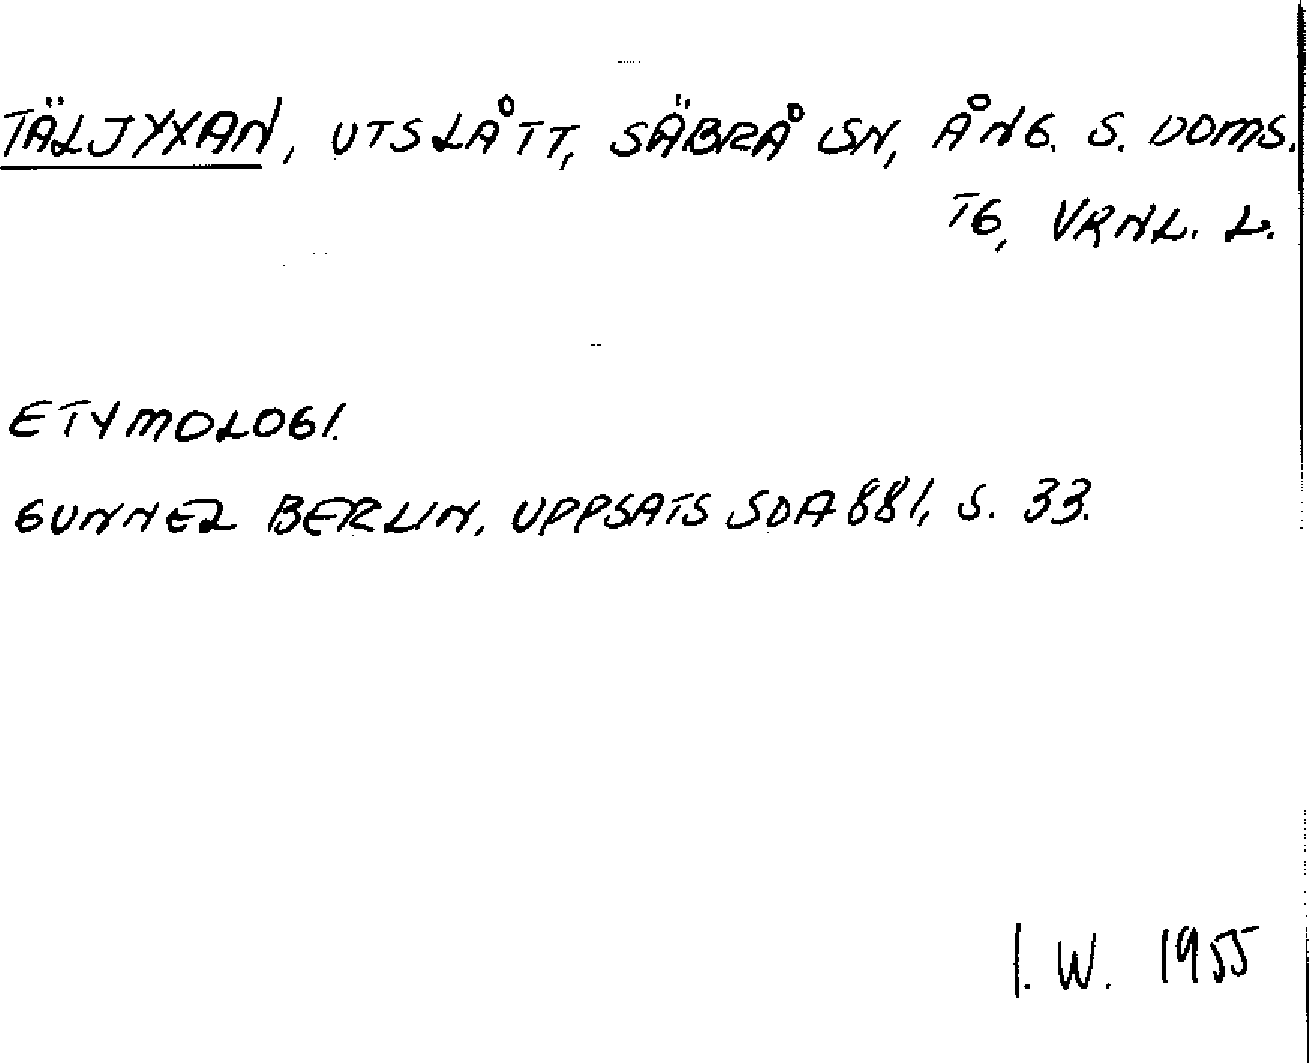 TÄLJYXAN, UTSLÅTT, SÄBRÅ SN, ÅNG. S. DOMS.
TG, VRNL. L.
ETYMOLOGI.
GUNNEL BERLIN, UPPSATS SOA 881, S. 33.
I. W. 1955